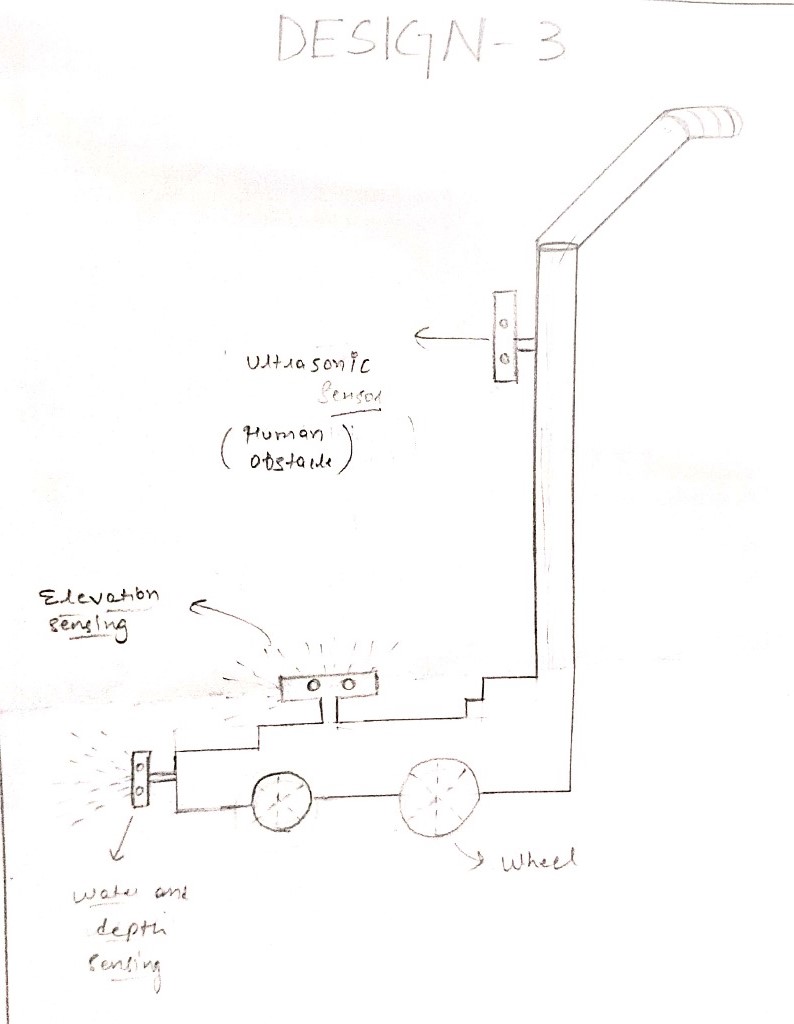 DESIGN-3
Ultrasonic
Sensor
(Human
Obstacle)
Elevation
sensing
Wheel
Water and
depth
Sensing